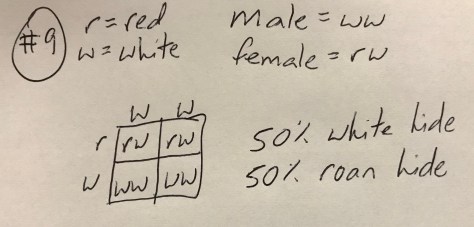 #9
r = red
w = white
male = ww
female = rw
w w
r rw rw
w ww ww
50% white hide
50% roan hide